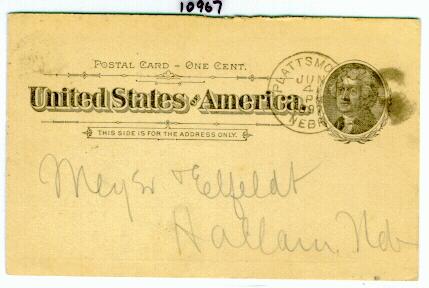 10967
POSTAL CARD – ONE CENT.
United States of America.
THIS SIDE IS FOR THE ADDRESS ONLY.
PLATTSMO
JUN
4
PM
97
NEBR
Meyer & Elfeldt
Hallam, Neb